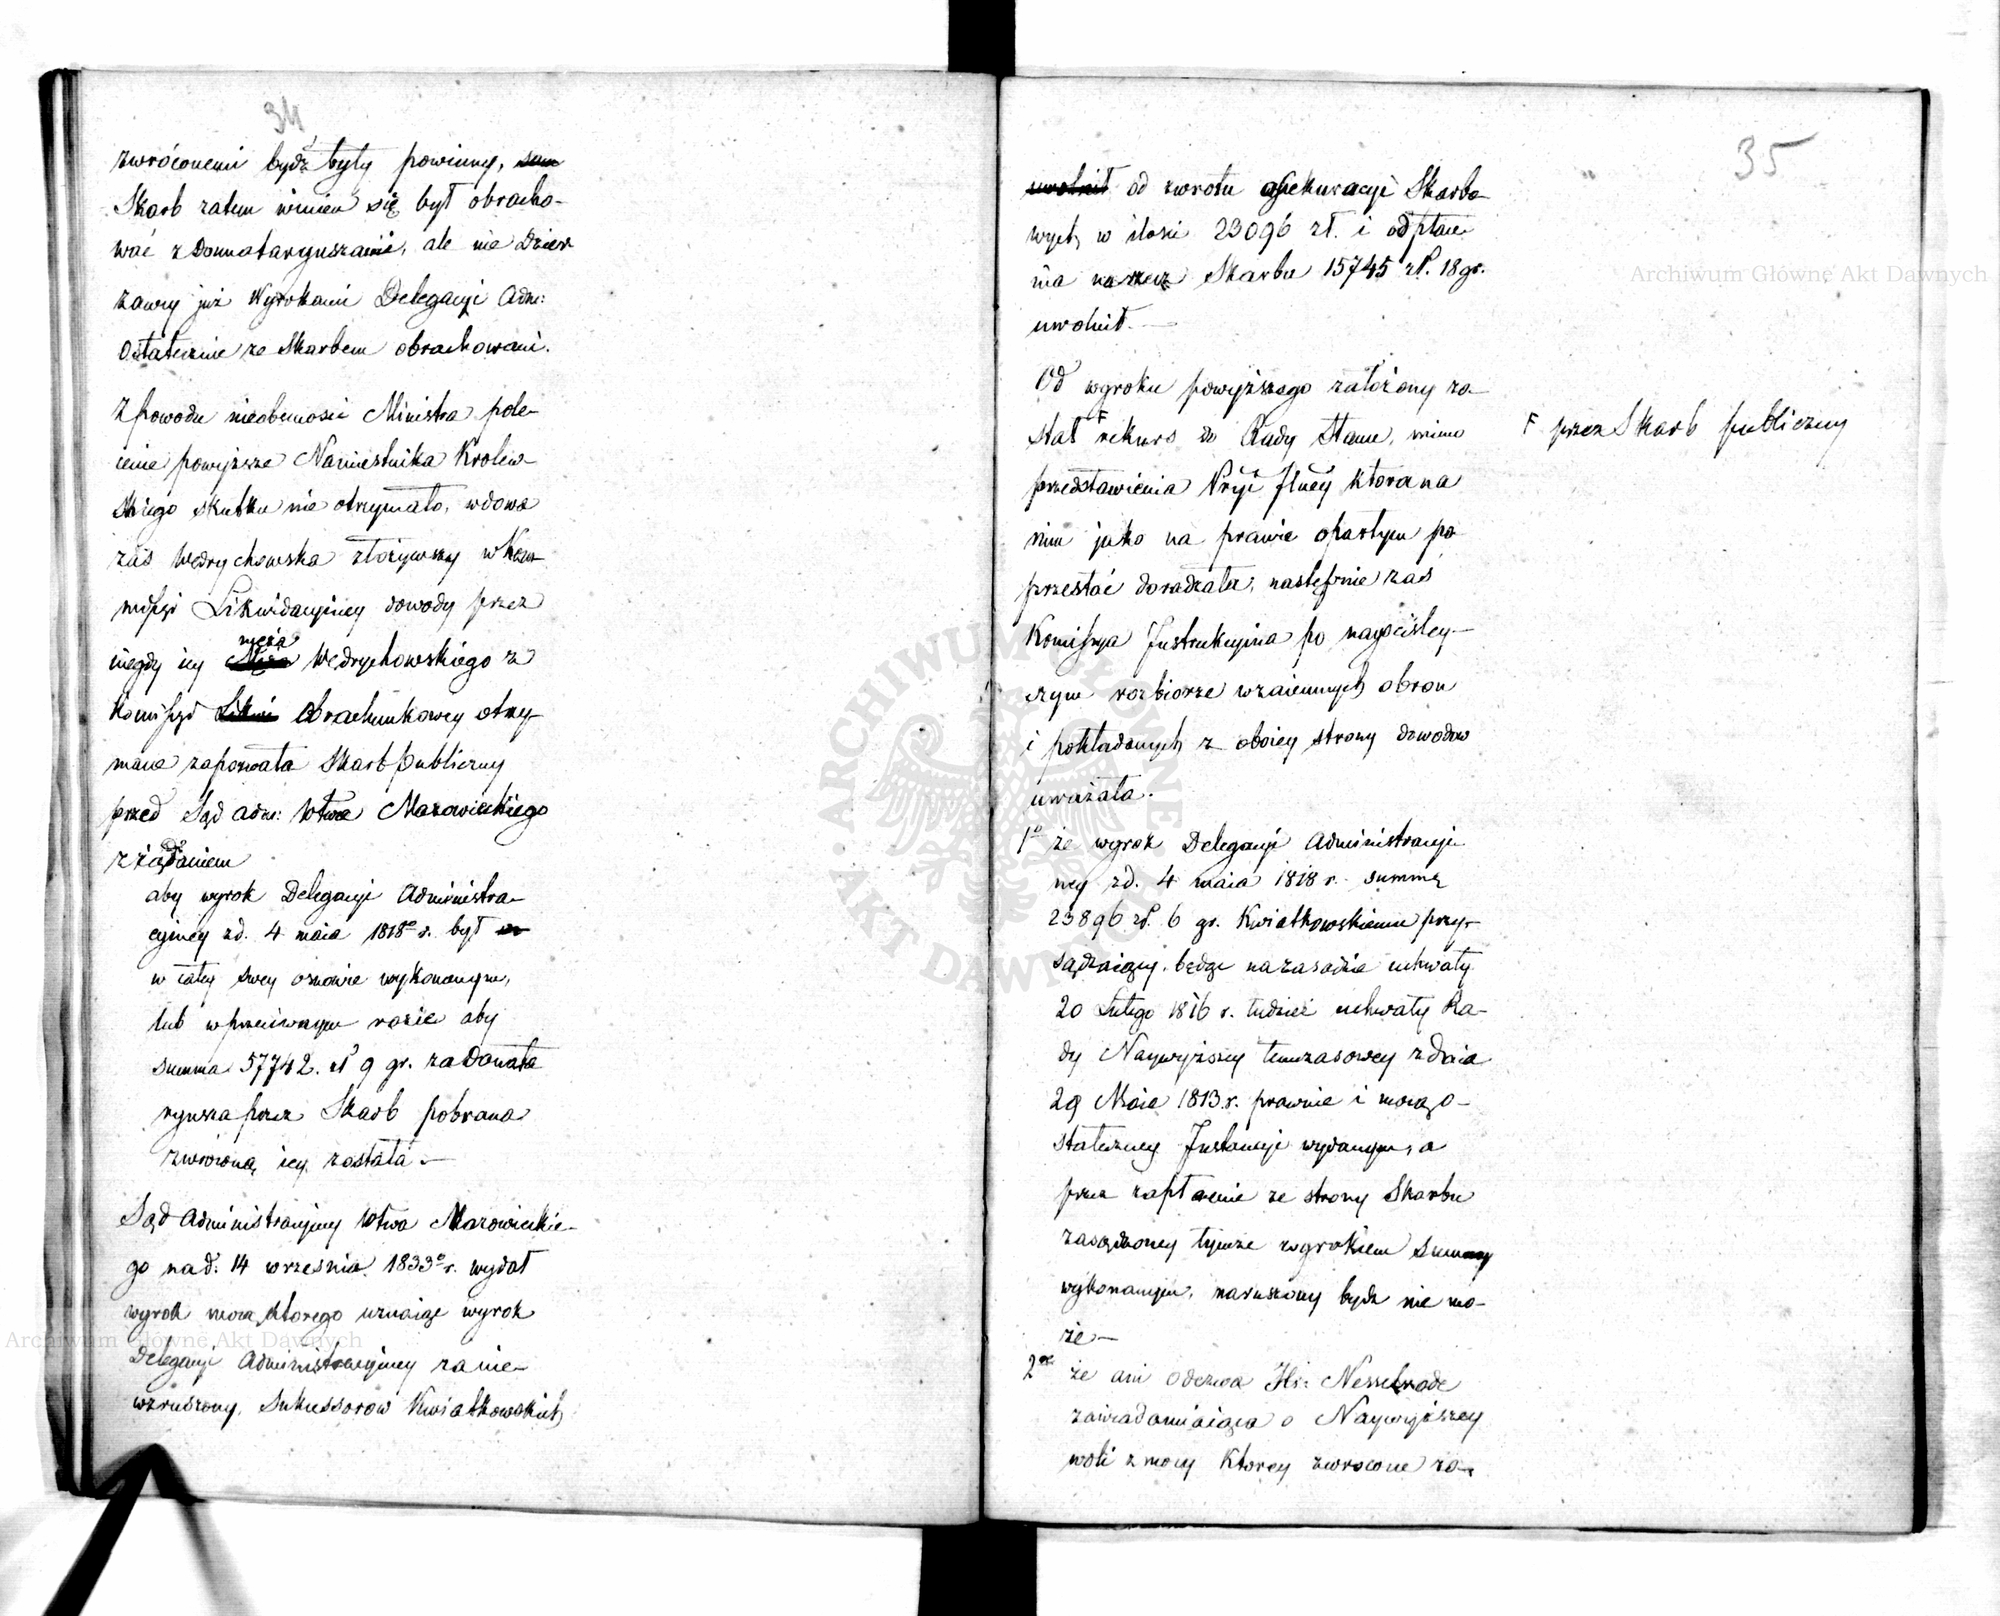 34
zwróconemi bydź były powinny, sum
Skarb zatem winien się był obracho-
wać z Donnataryuszami, ale nie Dzier
zawcy już Wyrokami Delegacyi Adm:
Ostatecznie ze Skarbem obrachowani.
Z powodu nieobecności Ministra pole-
cenie powyższe Namiestnika Krolew-
skiego skutku nie otrzymało, wdowa
zaś Wędrychowska złożywszy w Kom
missyi Likwidacyiney dowody przez
niegdy iey męża Wędrychowskiego z
Kommissyi Likwi Obrachunkowey otrzy-
mane zapozwała Skarb publiczny
przed Sąd Adm: Wtwa Mazowieckiego
z żądaniem
aby wyrok Delegacyi Administra-
cyiney z d. 4 maia 1818o r. był w
w całey swey osnowie wykonanym,
lub w przeciwnym razie aby
summa 57742. zł 9 gr. za Donata
ryusza przez Skarb pobrana
zwróconą iey została.—
Sąd Administracyiny Wtwa Mazowieckie-
go na d. 14 września 1833o r. wydał
wyrok mocą ktorego uznaiąc wyrok
Delegacyi Administracyiney za nie-
wzruszony, Sukcessorow Kwiatkowskich
35
uwolnił od zwrotu assekuracyi Skarbo-
wych w ilości 23096 zł. i od płace-
nia na rzecz Skarbu 15745 zł. 18 gr.
uwolnił.—
Od wyroku powyższego założony zo-
stał F rekurs do Rady Stanu, mimo
F przez Skarb publiczny
przedstawienia ktora na
nim jako na prawie opartym po
przestać doradzała; następnie zaś
Kommissya Instrukcyina po nayściśley-
szym rozbiorze wzaiemnych obron
i pokładanych z oboiey strony dowodow
uważała.
1o że wyrok Delegacyi Administracyi-
ney z d. 4 maia 1818 r. summę
23896 zł. 6 gr. Kwiatkowskiemu przy-
sądzaiący, będąc na zasadzie uchwały
20 Lutego 1816 r. tudzież uchwały Ra-
dy Naywyższey tymczasowey z dnia
29 Maia 1813 r. prawnie i mocą o-
stateczney Instancyi wydanym, a
przez zapłacenie ze strony Skarbu
zasądzoney tymże wyrokiem summy
wykonanym, naruszony bydź nie mo-
że—
2o że ani odezwa Hr: Nesselrode
zawiadamiaiąca o Naywyższey
woli z mocy ktorey zwrocone zo-
Archiwum Główne Akt Dawnych
Archiwum Główne Akt Dawnych
ARCHIWUM GŁÓWNE · AKT DAWNYCH ·